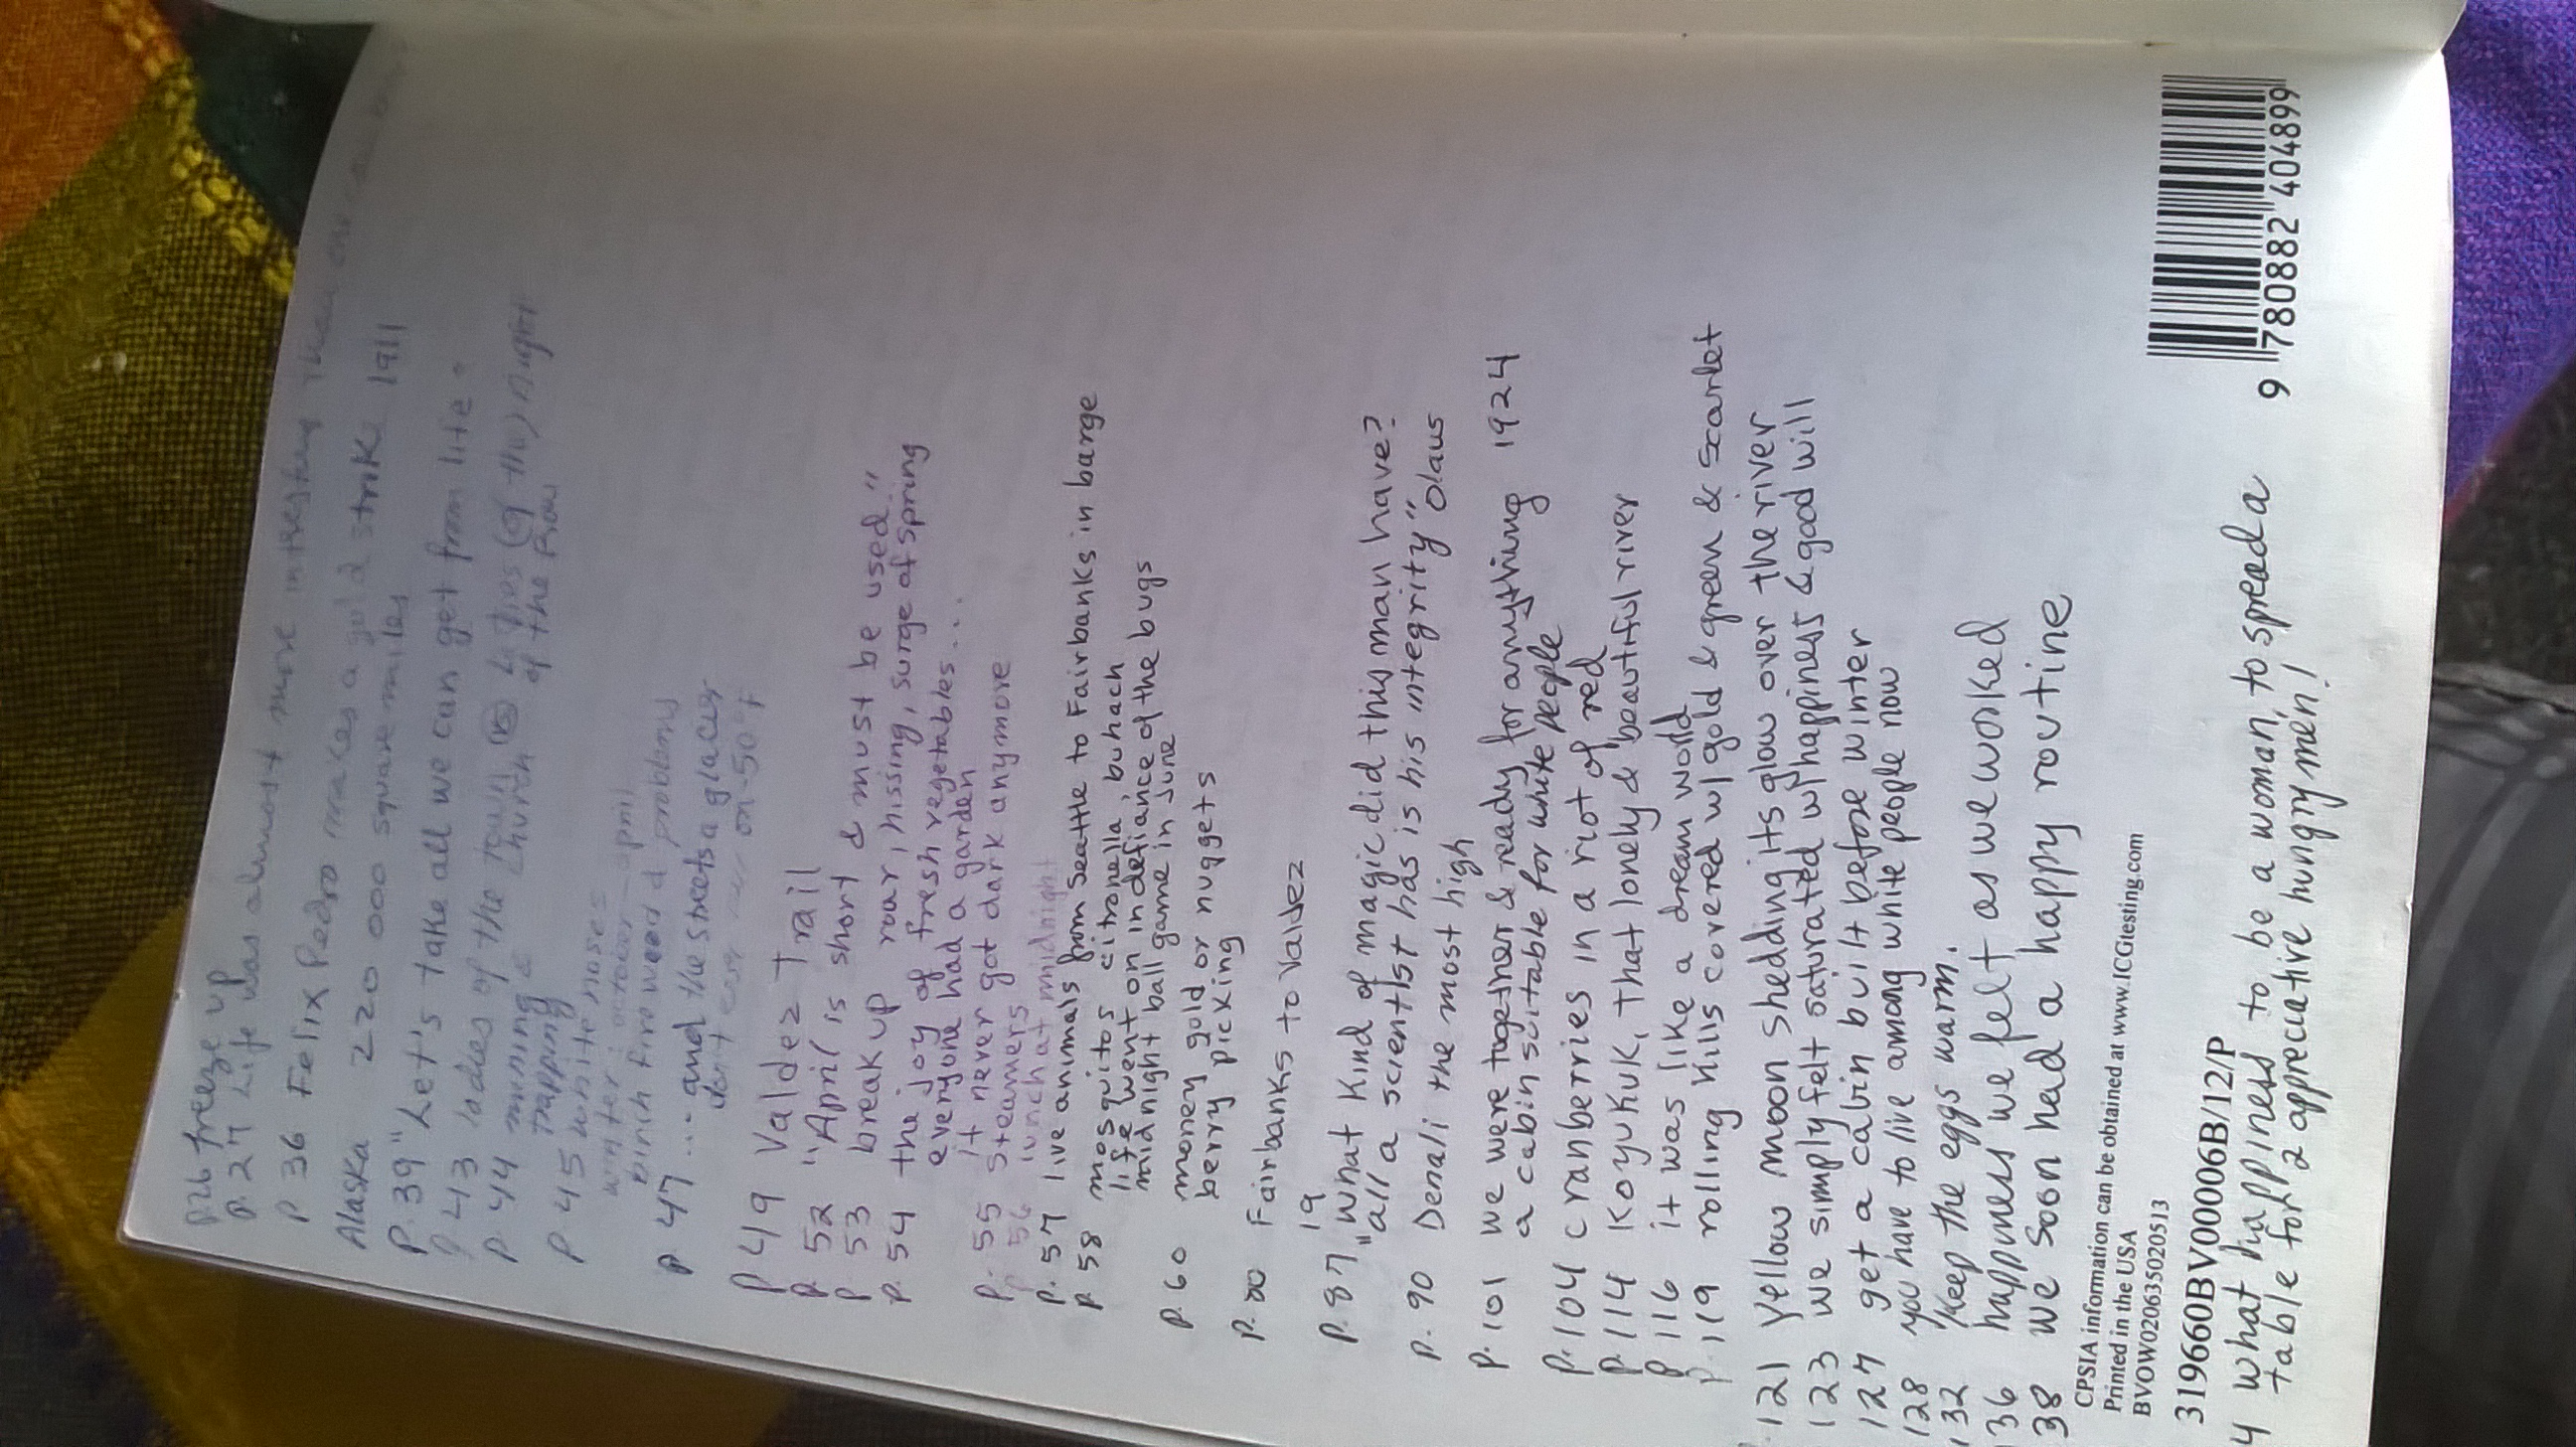 p.26 freeze up
p.27 Life was almost more interesting than
p 36 Felix Pedro makes a gold strike 1911
Alaska 220 000 square miles
p.39 "Let's take all we can get from life.
p.43 ladies of the town & ladies (of the) night
of the Row
p.44 mining & church
trapping
p 45 white noses
winter: october-april
birch firewood problems
p 47 .... and the streets a glacier
don't even on -50°F
p 49 Valdez Trail
p. 52 "April is short & must be used"
p 53 break up roar, hissing, surge of spring
p. 54 the joy of fresh vegetables...
everyone had a garden
p. 55 it never got dark anymore
p 56 steamers
lunch at midnight
p. 57 live animals from Seattle to Fairbanks in barge
p 58 mosquitos citronella buhach
life went on in defiance of the bugs
midnight ball game in June
p. 60 money gold or nuggets
berry picking
p. 80 Fairbanks to Valdez
19
p. 87 "what kind of magic did this man have?
"all a scientist has is his integrity" Olaus
p. 90 Denali the most high
p. 101 we were together & ready for anything 1924
a cabin suitable for white people
p. 104 cranberries in a riot of red
p 114 Koyukuk, that lonely & beautiful river
p 116 it was like a dream world
p. 119 rolling hills covered w/ gold & green & scarlet
121 yellow moon shedding its glow over the river
123 we simply felt saturated w/ happiness & good will
127 get a cabin built before winter
128 you have to live among white people now
132 keep the eggs warm.
136 happiness we felt as we worked
38 we soon had a happy routine
CPSIA information can be obtained at www.ICGtesting.com
Printed in the USA
BVOW020635020513
319660BV00006B/12/P
9 780882 404899
4 what happiness to be a woman, to spread a
table for 2 appreciative hungry men!